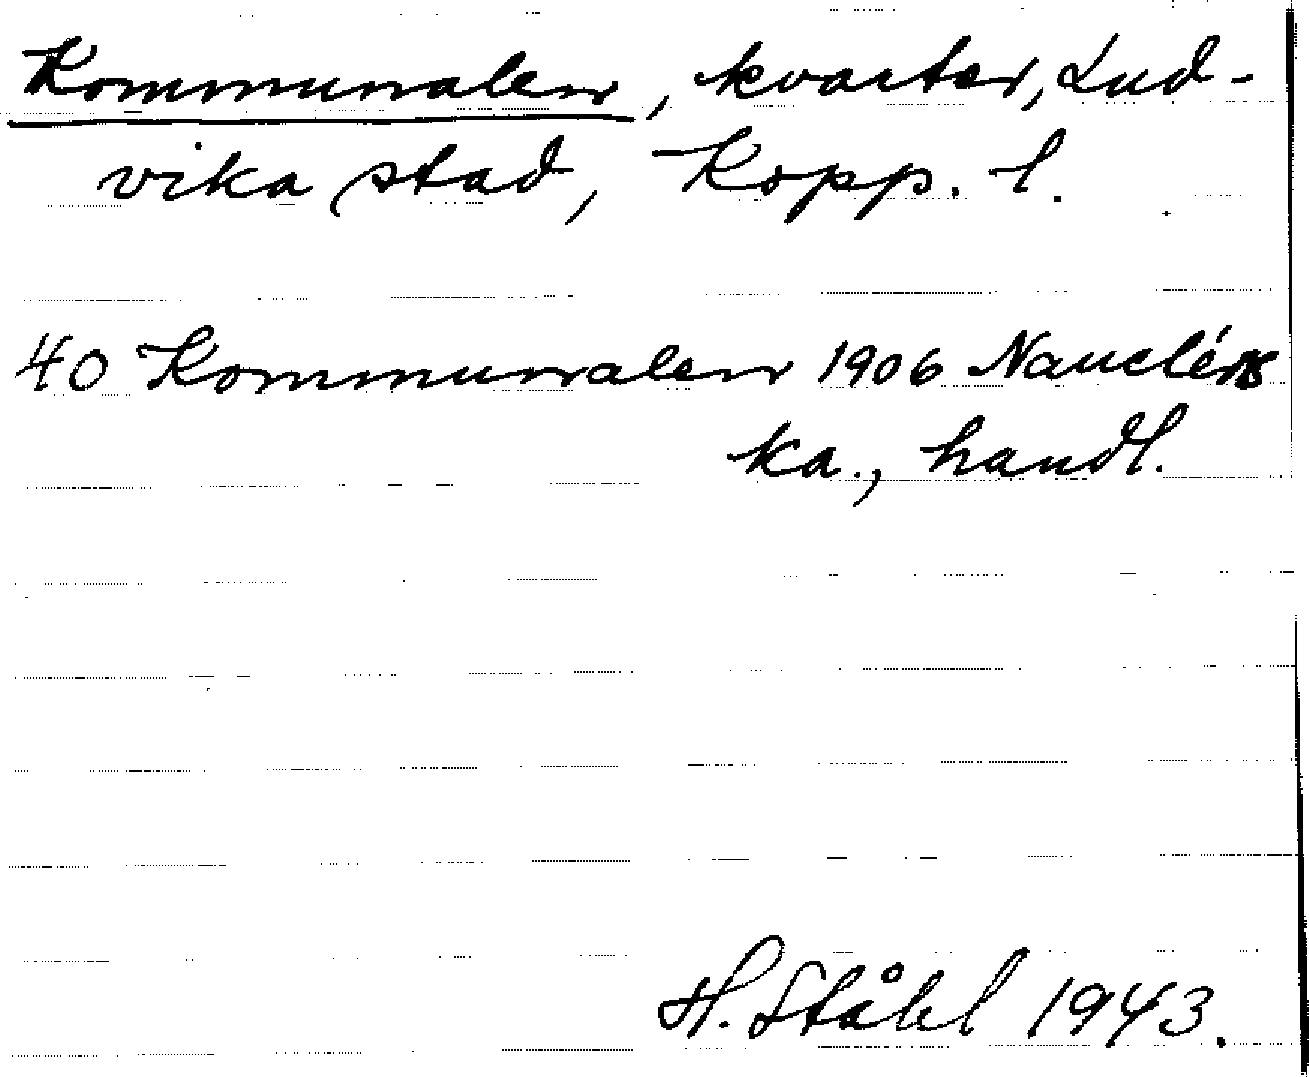 Kommunalen, kvarter, Lud-
vika stad, Kopp. l.
40 Kommunalen 1906 Nauclérs
ka., handl.
H. Ståhl 1943.